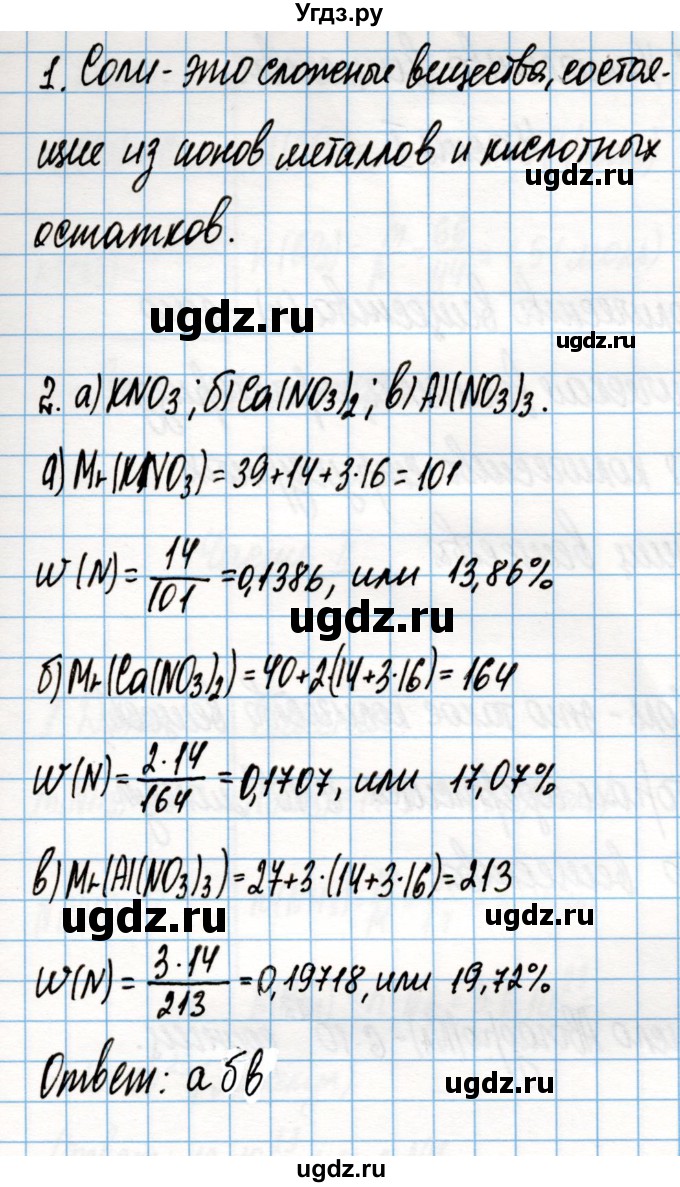 Угдз.ру
1. Соли - это сложные вещества, состоя-
щие из ионов металлов и кислотных
ugdz.ru
остатков.
ugdz.ru
2. а) KNO3; б) Ca(NO3)2; в) Al(NO3)3.
а) Mr(KNO3) = 39+14+3·16 = 101
W(N) = 14/101 = 0,1386, или 13,86%
ugdz.ru
б) Mr(Ca(NO3)2) = 40+2(14+3·16) = 164
W(N) = 2·14/164 = 0,1707, или 17,07%
в) Mr(Al(NO3)3) = 27+3·(14+3·16) = 213
ugdz.ru
W(N) = 3·14/213 = 0,19718, или 19,72%
Ответ: а б в
ugdz.ru
ugdz.ru